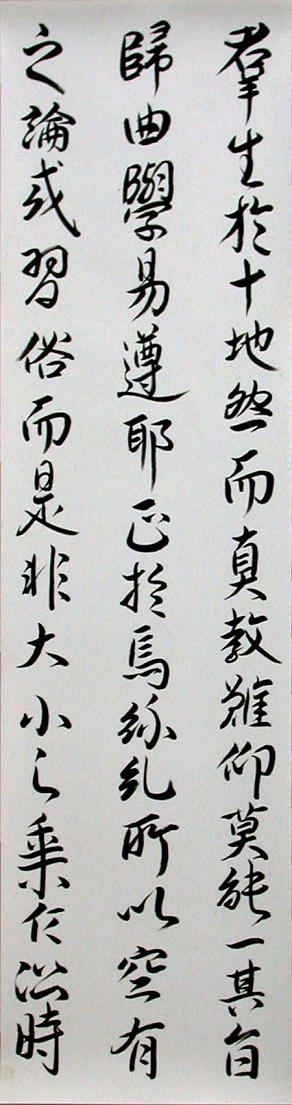 羣生於十地然而真教難仰莫能一其旨
歸曲學易遵耶正於焉紛糺所以空有
之論或習俗而是非大小之乗乍㳂時